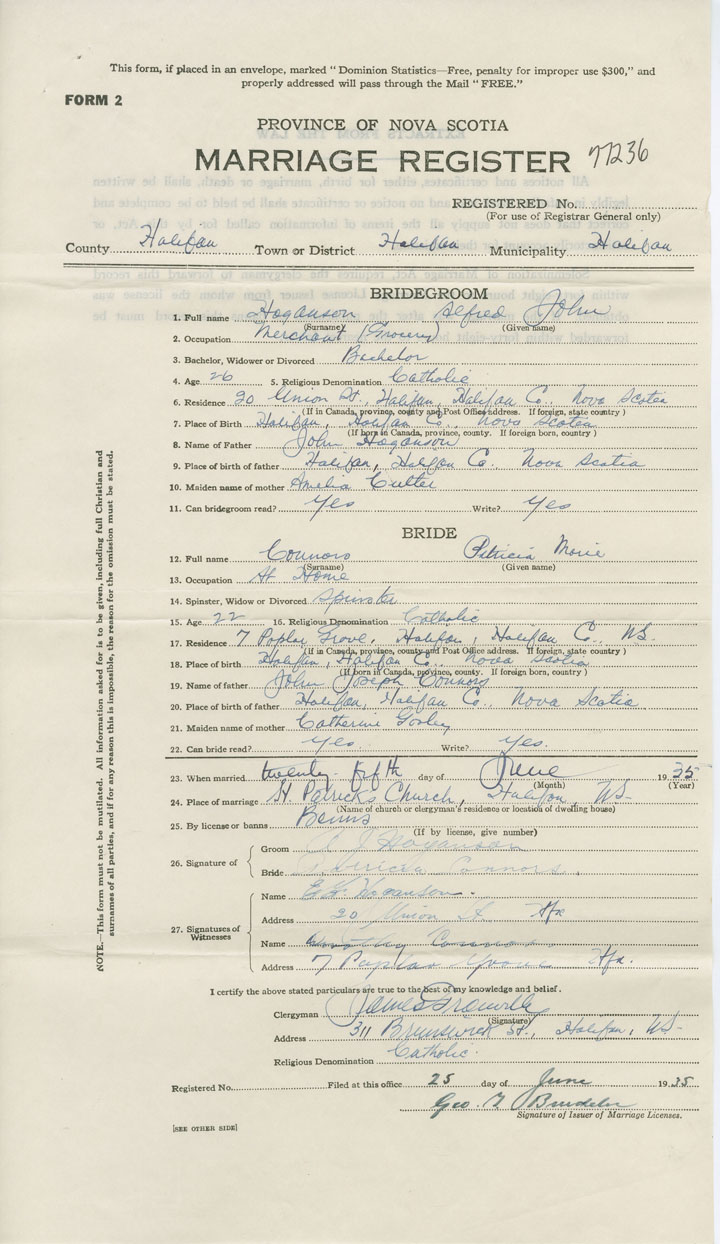 This form, if placed in an envelope, marked "Dominion Statistics—Free, penalty for improper use $300," and
properly addressed will pass through the Mail "FREE."
FORM 2
PROVINCE OF NOVA SCOTIA
MARRIAGE REGISTER 77236
REGISTERED No.
(For use of Registrar General only)
County Halifax Town or District Halifax Municipality Halifax
BRIDEGROOM
1. Full name Hoganson Alfred John
(Surname) (Given name)
2. Occupation Merchant (Grocery)
3. Bachelor, Widower or Divorced Bachelor
4. Age 26 5. Religious Denomination Catholic
6. Residence 20 Union St., Halifax, Halifax Co., Nova Scotia
(If in Canada, province, county and Post Office address. If foreign, state country)
7. Place of Birth Halifax, Halifax Co., Nova Scotia
(If born in Canada, province, county. If foreign born, country)
8. Name of Father John Hoganson
9. Place of birth of father Halifax, Halifax Co. Nova Scotia
10. Maiden name of mother Amelia
11. Can bridegroom read? Yes Write? Yes
BRIDE
12. Full name Connors Patricia Marie
(Surname) (Given name)
13. Occupation At Home
14. Spinster, Widow or Divorced Spinster
15. Age 22 16. Religious Denomination Catholic
17. Residence 7 Poplar Grove, Halifax, Halifax Co., NS.
(If in Canada, province, county and Post Office address. If foreign, state country)
18. Place of birth Halifax, Halifax Co., Nova Scotia
(If born in Canada, province, county. If foreign born, country)
19. Name of father John Joseph Connors
20. Place of birth of father Halifax, Halifax Co., Nova Scotia
21. Maiden name of mother Catherine
22. Can bride read? yes Write? yes.
23. When married twenty fifth day of June 1935
(Month) (Year)
24. Place of marriage St. Patrick's Church, Halifax NS-
(Name of church or clergyman's residence or location of dwelling house)
25. By license or banns Banns
(If by license, give number)
26. Signature of
Groom A J Hoganson
Bride Patricia Connors
27. Signatures of Witnesses
Name Hoganson
Address 20 Union St. Hfx
Name Connors
Address 7 Poplar Grove Hfx.
I certify the above stated particulars are true to the best of my knowledge and belief.
Clergyman James
(Signature)
Address 311 Brunswick St., Halifax, NS-
Religious Denomination Catholic.
Registered No. Filed at this office 25 day of June 1935
Geo.
Signature of Issuer of Marriage Licenses.
[SEE OTHER SIDE]
NOTE.—This form must not be mutilated. All information asked for is to be given, including full Christian and
surnames of all parties, and if for any reason this is impossible, the reason for the omission must be stated.